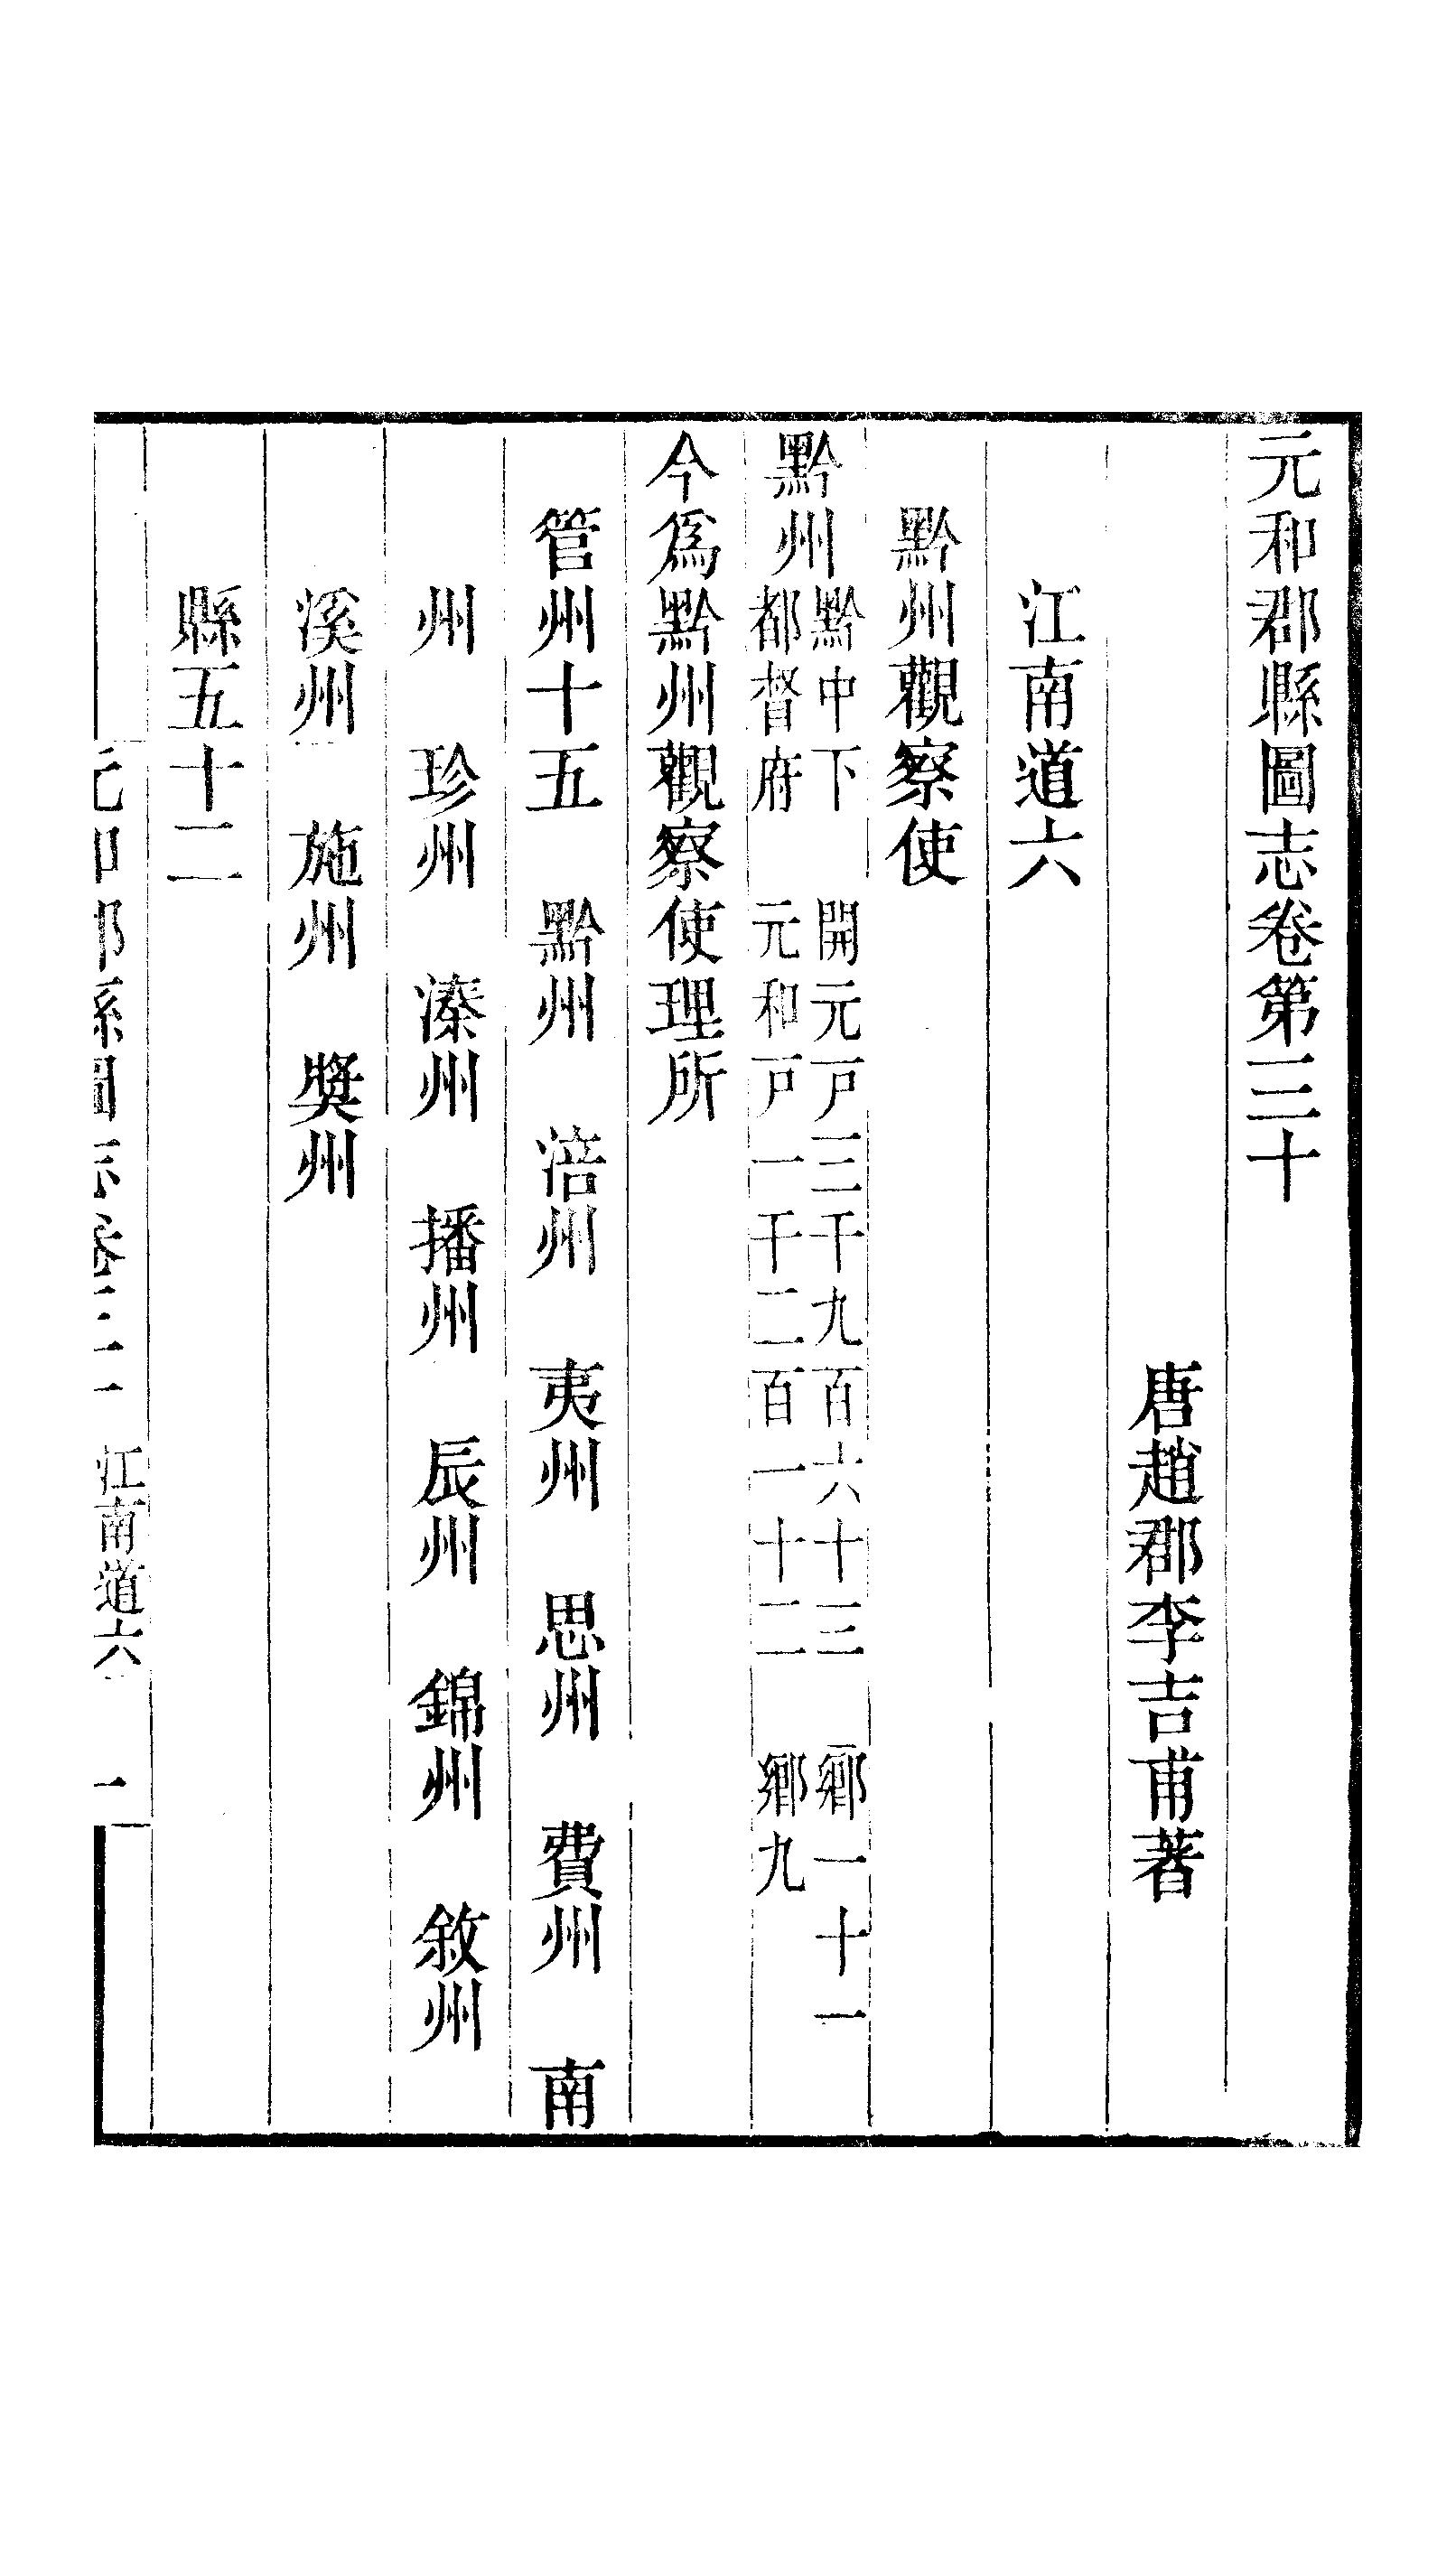 元和郡縣圖志卷第三十
唐趙郡李吉甫著
江南道六
黔州觀察使
黔州黔中下都督府 開元戸三千九百六十三 鄉一十一 元和戸一千二百一十二 鄉九
今爲黔州觀察使理所
管州十五 黔州 涪州 夷州 思州 費州 南
州 珍州 溱州 播州 辰州 錦州 敘州
溪州 施州 獎州
縣五十二
元和郡縣圖志卷三十 江南道六 一